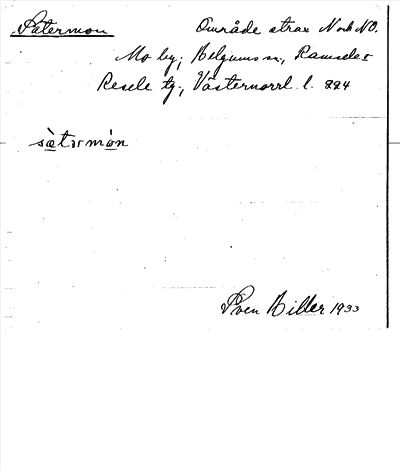 Sätermon Område strax N och NO.
Mo by; Helgums sn, Ramsele o
Resele tg., Västernorrl. l. 224
sὲtərmòn
Sven Hiller 1933